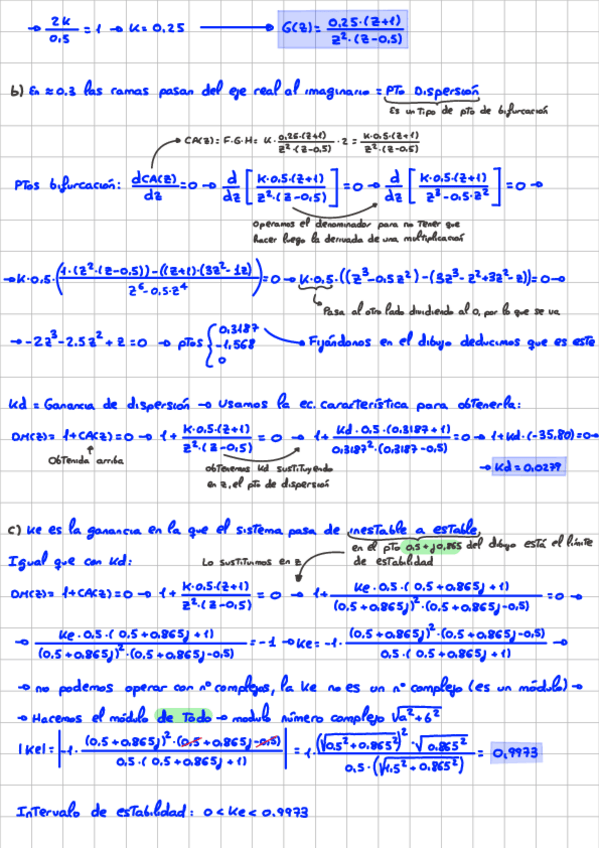 → 2k/0,5 = 1 → K = 0,25 → G(z) = 0,25·(z+1)/z²·(z-0,5)
b) En ≈ 0,3 las ramas pasan del eje real al imaginario = PTO Dispersión
Es un tipo de pto de bifurcación
CA(z) = F·G·H = K · 0,25·(z+1)/z²·(z-0,5) · 2 = K·0,5·(z+1)/z²·(z-0,5)
PTOS bifurcación: dCA(z)/dz = 0 → d/dz [K·0,5·(z+1)/z²·(z-0,5)] = 0 → d/dz [K·0,5·(z+1)/z³-0,5·z²] = 0 →
Operamos el denominador para no tener que
hacer luego la derivada de una multiplicación
→ K·0,5·(1·(z²·(z-0,5)) - ((z+1)·(3z²-1z)/z⁶-0,5·z⁴) = 0 → K·0,5·((z³-0,5z²)-(3z³-z²+3z²-z)) = 0 →
Pasa al otro lado dividiendo al 0, por lo que se va
→ -2z³-2.5z²+z = 0 → ptos { 0,3187
-1,568
0
→ Fijándonos en el dibujo deducimos que es este
Kd = Ganancia de dispersión → Usamos la ec. característica para obtenerla:
DM(z) = 1+CA(z) = 0 → 1 + K·0,5·(z+1)/z²·(z-0,5) = 0 → 1 + Kd·0,5·(0,3187+1)/0,3187²·(0,3187-0,5) = 0 → 1+Kd·(-35,80) = 0 →
Obtenida arriba
obtenemos Kd sustituyendo
en z, el pto de dispersión
→ Kd = 0,0279
c) Ke es la ganancia en la que el sistema pasa de inestable a estable,
en el pto 0,5 + j0,865 del dibujo está el límite
de estabilidad
Igual que con Kd:
Lo sustituimos en z
DM(z) = 1+CA(z) = 0 → 1 + K·0,5·(z+1)/z²·(z-0,5) = 0 → 1 + Ke·0,5·(0,5+0,865j+1)/(0,5+0,865j)²·(0,5+0,865j-0,5) = 0 →
→ Ke·0,5·(0,5+0,865j+1)/(0,5+0,865j)²·(0,5+0,865j-0,5) = -1 → Ke = -1· (0,5+0,865j)²·(0,5+0,865j-0,5)/0,5·(0,5+0,865j+1) →
→ no podemos operar con nº complejos, la Ke no es un nº complejo (es un módulo) →
→ Hacemos el módulo de Todo → modulo número complejo √a²+b²
|Ke| = |-1· (0,5+0,865j)²·(0,5+0,865j-0,5)/0,5·(0,5+0,865j+1)| = 1·(√0,5²+0,865²)²·√0,865²/0,5·(√1,5²+0,865²) = 0,9973
Intervalo de estabilidad: 0 < Ke < 0.9973